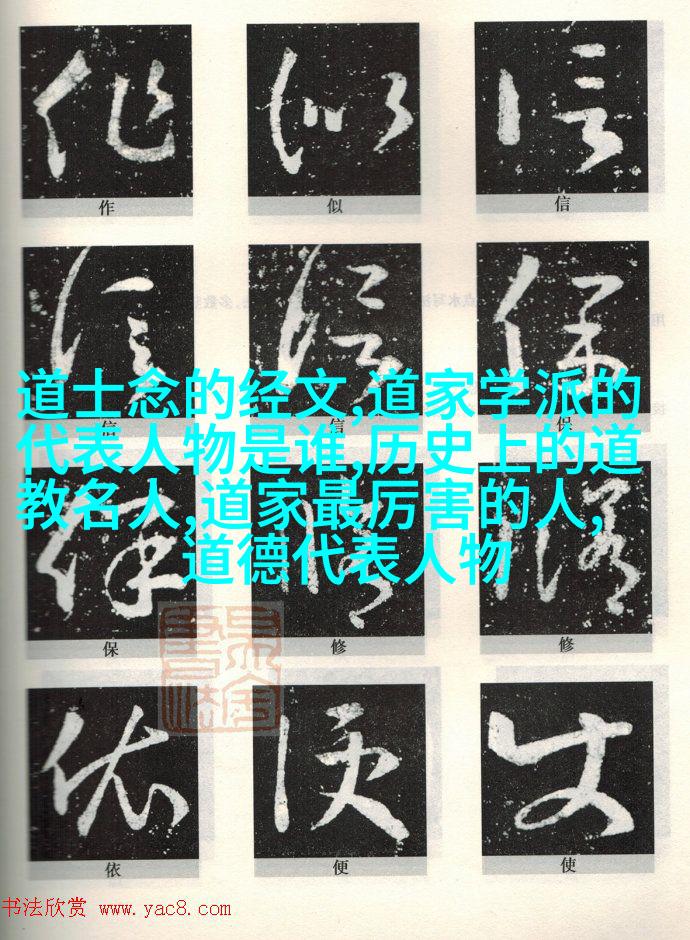 作 似 信
道士念的经文,道家学派的
信 信 保
代表人物是谁,历史上的道
教名人,道家最厉害的人,
道德代表人物
保 修 修
依 便 使
书法欣赏 www.yac8.com